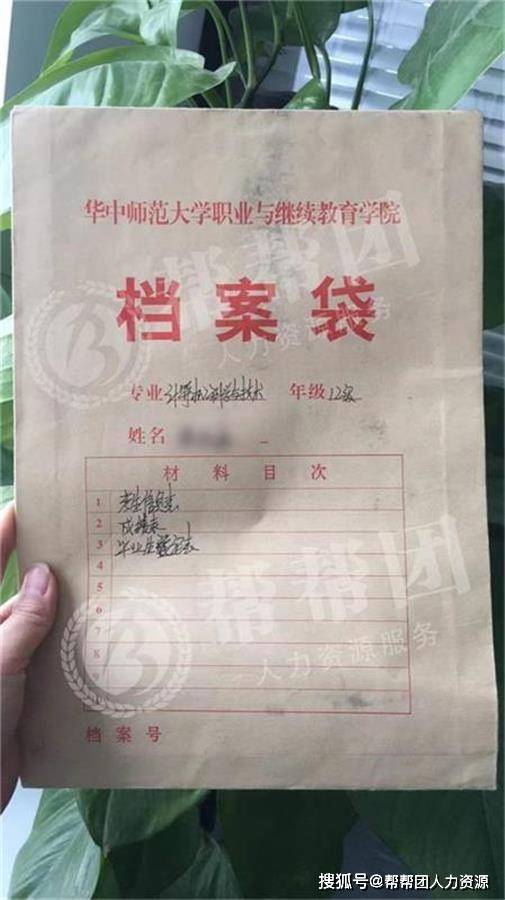 华中师范大学职业与继续教育学院
档案袋
专业 计算机科学与技术 年级 12级
姓名
材料目次
1 考生信息表
2 成绩表
3 毕业生登记表
4
5
6
7
8
9
档案号
帮帮团
人力资源服务
帮帮团
人力资源服务
搜狐号@帮帮团人力资源